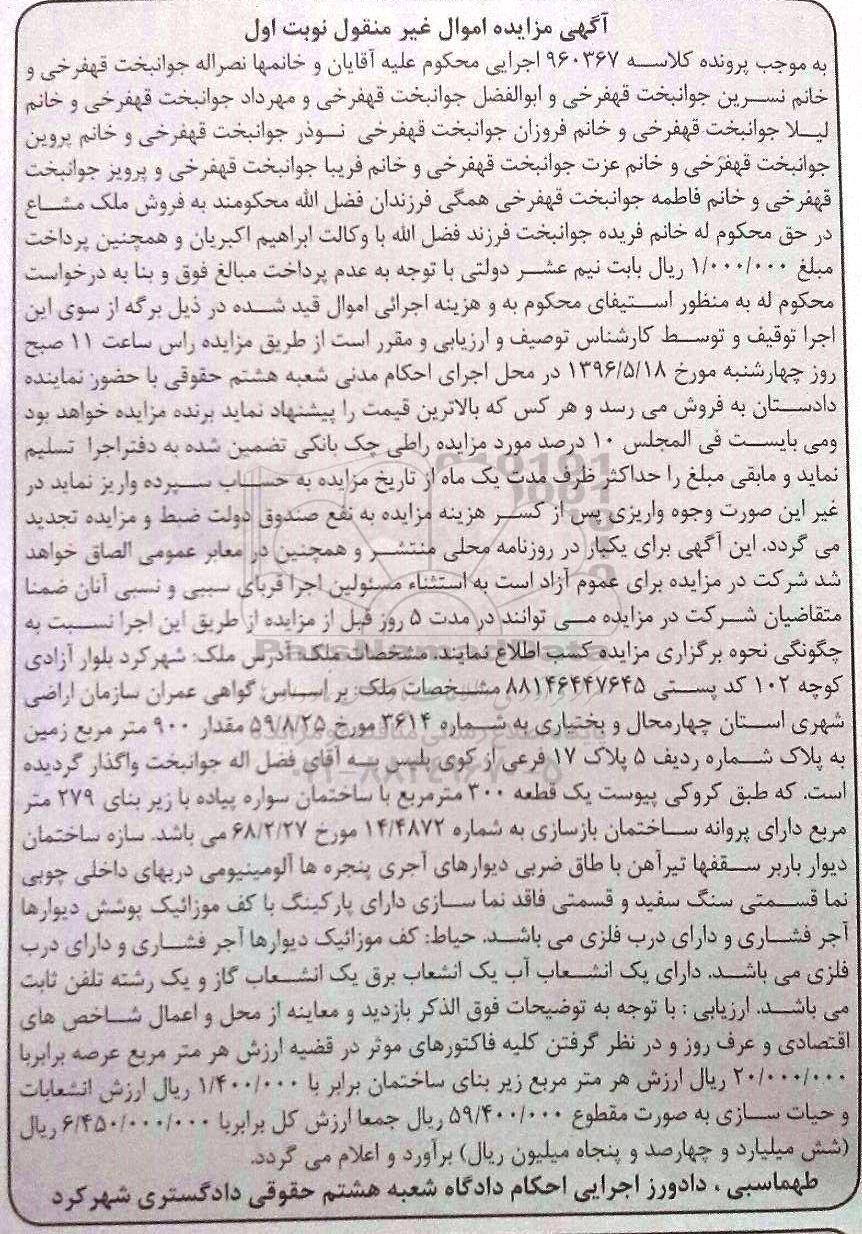 آگهی مزایده اموال غیر منقول نوبت اول
به موجب پرونده کلاسه ۹۶۰۳۶۷ اجرایی محکوم علیه آقایان و خانمها نصراله جوانبخت قهفرخی و
خانم نسرین جوانبخت قهفرخی و ابوالفضل جوانبخت قهفرخی و مهرداد جوانبخت قهفرخی و خانم
لیلا جوانبخت قهفرخی و خانم فروزان جوانبخت قهفرخی نوذر جوانبخت قهفرخی و خانم پروین
جوانبخت قهفرخی و خانم عزت جوانبخت قهفرخی و خانم فریبا جوانبخت قهفرخی و پرویز جوانبخت
قهفرخی و خانم فاطمه جوانبخت قهفرخی همگی فرزندان فضل الله محکومند به فروش ملک مشاع
در حق محکوم له خانم فریده جوانبخت فرزند فضل الله با وکالت ابراهیم اکبریان و همچنین پرداخت
مبلغ ۱/۰۰۰/۰۰۰ ریال بابت نیم عشر دولتی با توجه به عدم پرداخت مبالغ فوق و بنا به درخواست
محکوم له به منظور استیفای محکوم به و هزینه اجرائی اموال قید شده در ذیل برگه از سوی این
اجرا توقیف و توسط کارشناس توصیف و ارزیابی و مقرر است از طریق مزایده راس ساعت ۱۱ صبح
روز چهارشنبه مورخ ۱۳۹۶/۵/۱۸ در محل اجرای احکام مدنی شعبه هشتم حقوقی با حضور نماینده
دادستان به فروش می رسد و هر کس که بالاترین قیمت را پیشنهاد نماید برنده مزایده خواهد بود
ومی بایست فی المجلس ۱۰ درصد مورد مزایده راطی چک بانکی تضمین شده به دفتراجرا تسلیم
نماید و مابقی مبلغ را حداکثر ظرف مدت یک ماه از تاریخ مزایده به حساب سپرده واریز نماید در
غیر این صورت وجوه واریزی پس از کسر هزینه مزایده به نفع صندوق دولت ضبط و مزایده تجدید
می گردد. این آگهی برای یکبار در روزنامه محلی منتشر و همچنین در معابر عمومی الصاق خواهد
شد شرکت در مزایده برای عموم آزاد است به استثناء مسئولین اجرا قربای سببی و نسبی آنان ضمنا
متقاضیان شرکت در مزایده می توانند در مدت ۵ روز قبل از مزایده از طریق این اجرا نسبت به
چگونگی نحوه برگزاری مزایده کسب اطلاع نمایند. مشخصات ملک: آدرس ملک: شهرکرد بلوار آزادی
کوچه ۱۰۲ کد پستی ۸۸۱۴۶۴۴۷۶۴۵ مشخصات ملک: بر اساس گواهی عمران سازمان اراضی
شهری استان چهارمحال و بختیاری به شماره ۳۶۱۴ مورخ ۵۹/۸/۲۵ مقدار ۹۰۰ متر مربع زمین
به پلاک شماره ردیف ۵ پلاک ۱۷ فرعی از کوی پلیس به آقای فضل اله جوانبخت واگذار گردیده
است. که طبق کروکی پیوست یک قطعه ۳۰۰ مترمربع با ساختمان سواره پیاده با زیر بنای ۲۷۹ متر
مربع دارای پروانه ساختمان بازسازی به شماره ۱۴/۴۸۷۲ مورخ ۶۸/۲/۲۷ می باشد. سازه ساختمان
دیوار باربر سقفها تیرآهن با طاق ضربی دیوارهای آجری پنجره ها آلومینیومی دربهای داخلی چوبی
نما قسمتی سنگ سفید و قسمتی فاقد نما سازی دارای پارکینگ با کف موزائیک پوشش دیوارها
آجر فشاری و دارای درب فلزی می باشد. حیاط: کف موزائیک دیوارها آجر فشاری و دارای درب
فلزی می باشد. دارای یک انشعاب آب یک انشعاب برق یک انشعاب گاز و یک رشته تلفن ثابت
می باشد. ارزیابی : با توجه به توضیحات فوق الذکر بازدید و معاینه از محل و اعمال شاخص های
اقتصادی و عرف روز و در نظر گرفتن کلیه فاکتورهای موثر در قضیه ارزش هر متر مربع عرصه برابربا
۲۰/۰۰۰/۰۰۰ ریال ارزش هر متر مربع زیر بنای ساختمان برابر با ۱/۴۰۰/۰۰۰ ریال ارزش انشعابات
و حیات سازی به صورت مقطوع ۵۹/۴۰۰/۰۰۰ ریال جمعا ارزش کل برابربا ۶/۴۵۰/۰۰۰/۰۰۰ ریال
(شش میلیارد و چهارصد و پنجاه میلیون ریال) برآورد و اعلام می گردد.
طهماسبی ، دادورز اجرایی احکام دادگاه شعبه هشتم حقوقی دادگستری شهرکرد